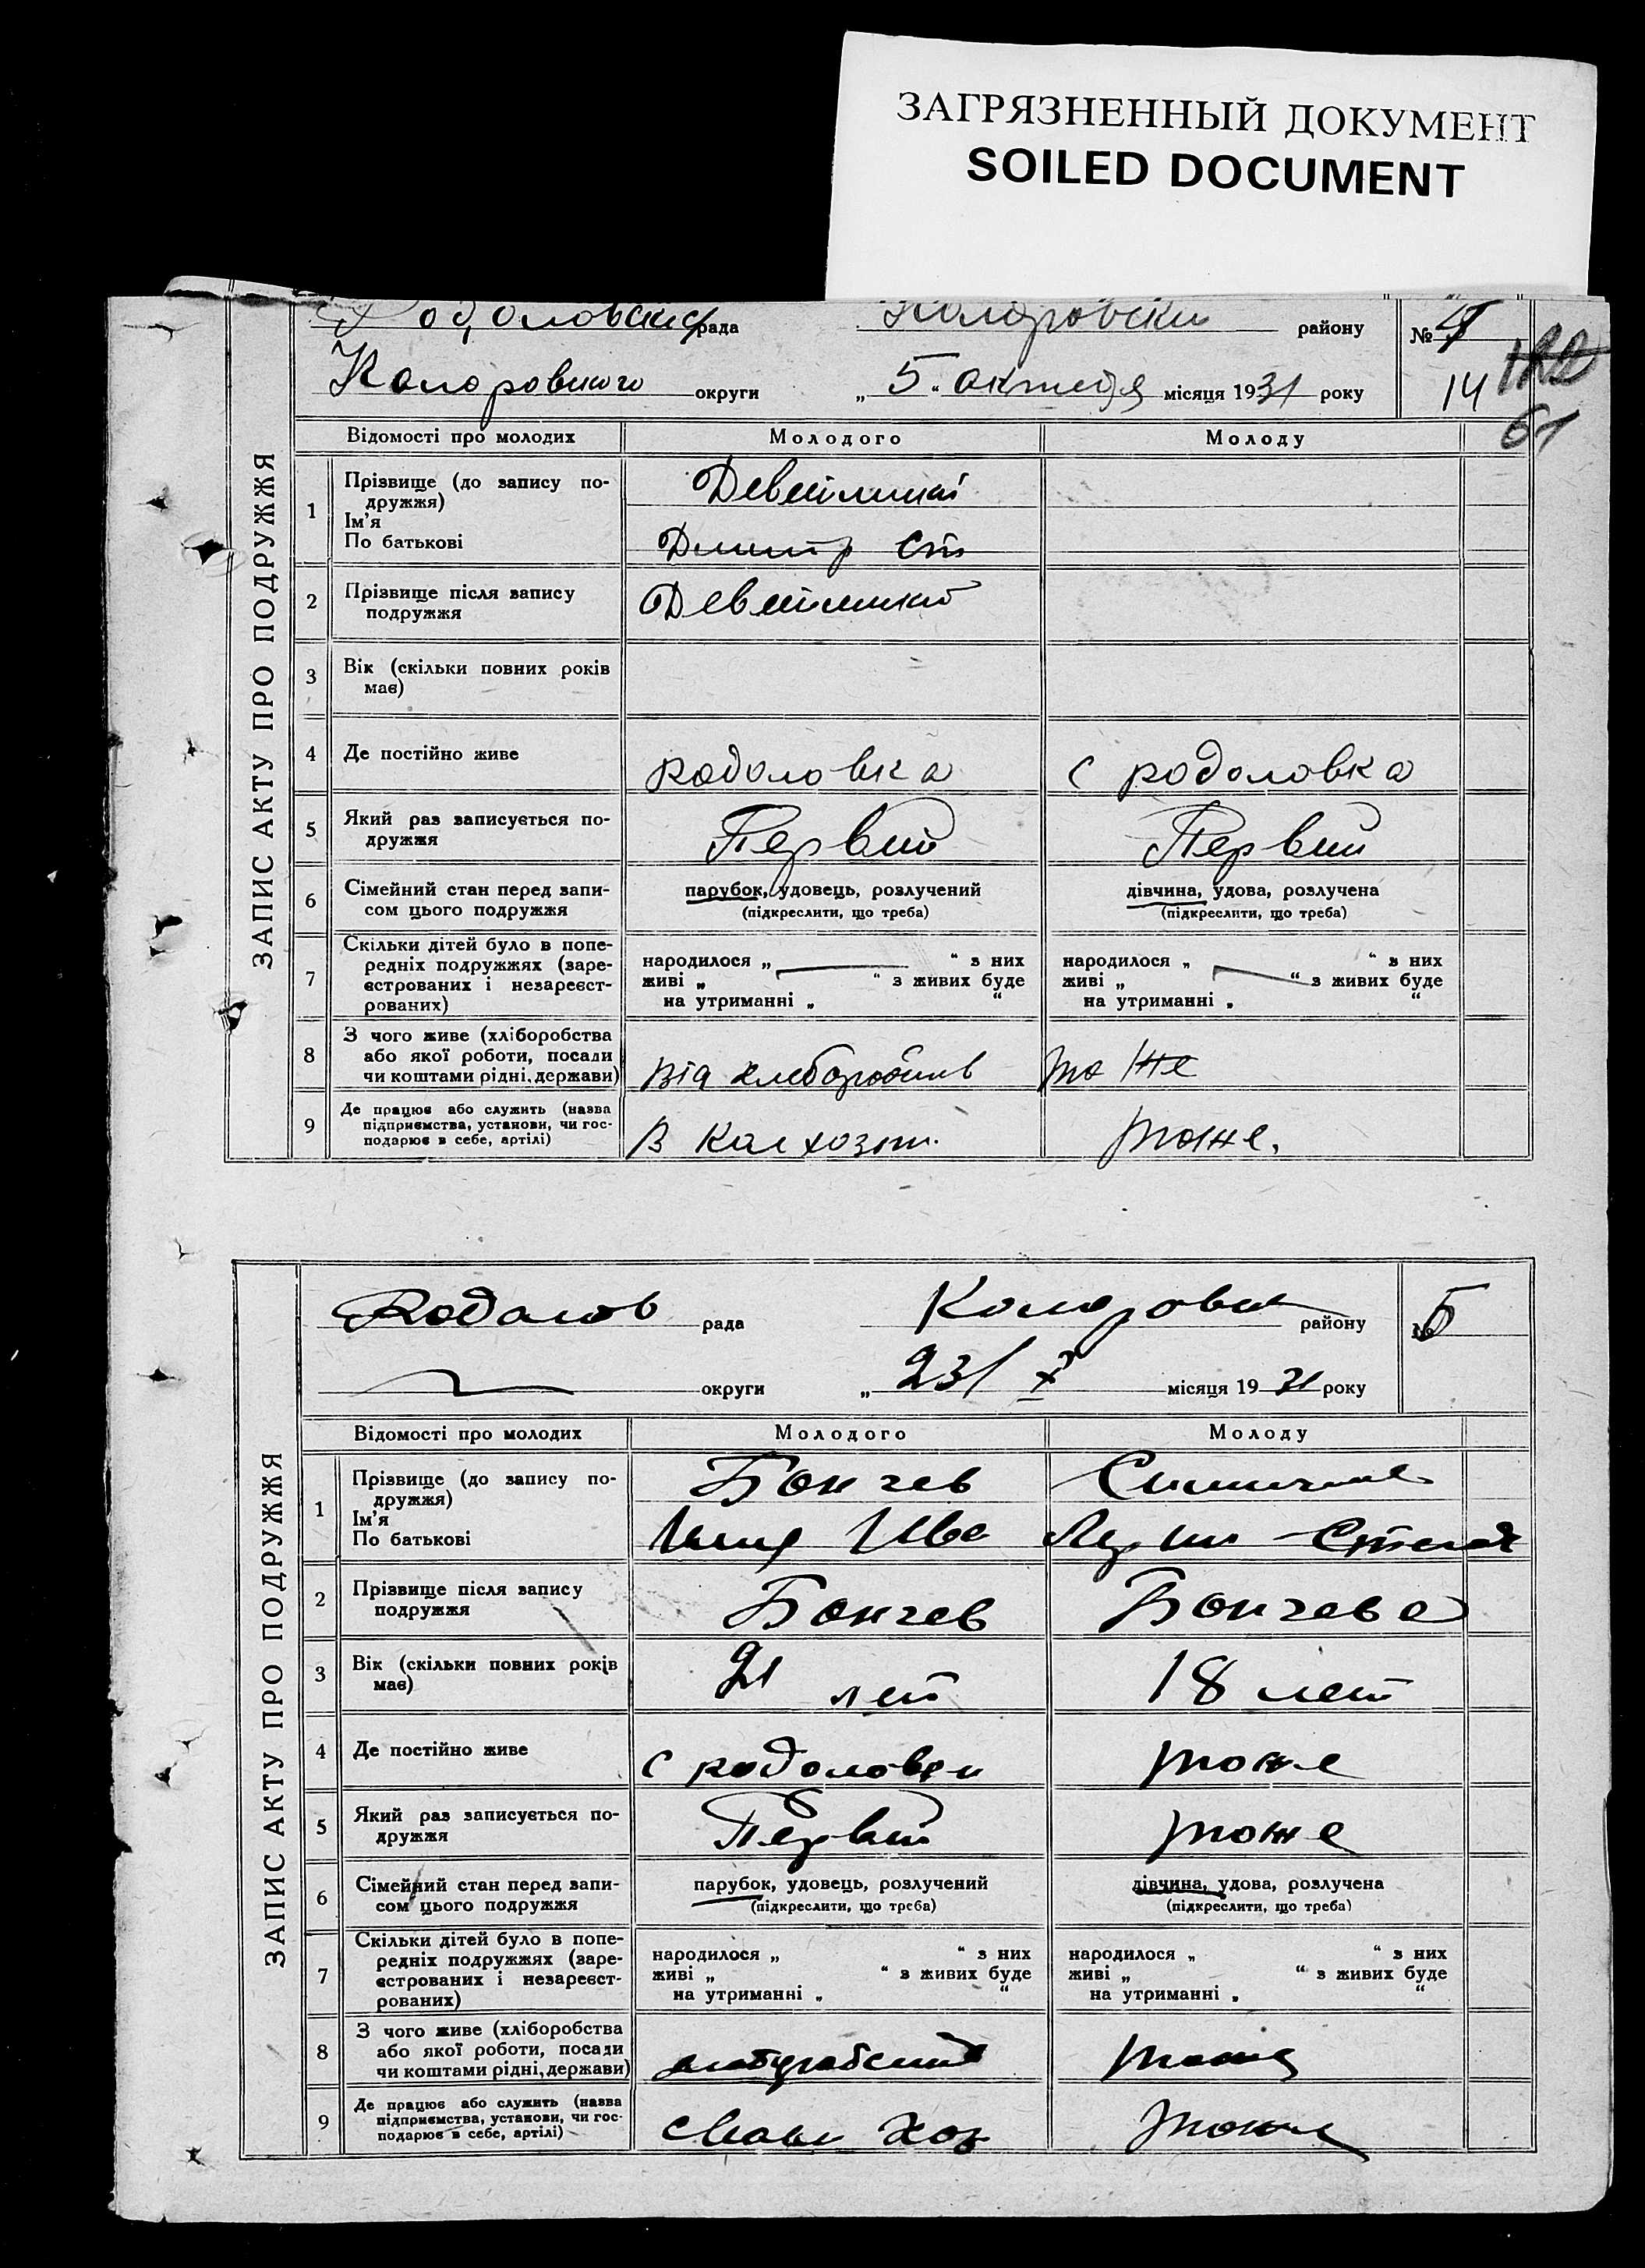 ЗАГРЯЗНЕННЫЙ ДОКУМЕНТ
SOILED DOCUMENT
рада району №
округи „ 5 “ октября місяця 1931 року 14
61
ЗАПИС АКТУ ПРО ПОДРУЖЖЯ
Відомості про молодих Молодого Молоду
1 Прізвище (до запису по-
дружжя)
Ім’я
По батькові Дмитр Ст
2 Прізвище після запису
подружжя
3 Вік (скільки повних років
має)
4 Де постійно живе Родоловка С родоловка
5 Який раз записується по-
дружжя Первий Первий
6 Сімейний стан перед запи-
сом цього подружжя парубок, удовець, розлучений дівчина, удова, розлучена
(підкреслити, що треба) (підкреслити, що треба)
7 Скільки дітей було в попе-
редніх подружжях (заре-
єстрованих і незареєст-
рованих) народилося „ “ з них народилося „ “ з них
живі „ “ з живих буде живі „ “ з живих буде
на утриманні „ “ на утриманні „ “
8 З чого живе (хліборобства
або якої роботи, посади
чи коштами рідні, держави) Від то же
9 Де працює або служить (назва
підприємства, установи, чи гос-
подарює в себе, артілі) В тоже.
Родолов рада району № 5
округи „ 23/X місяця 1931 року
ЗАПИС АКТУ ПРО ПОДРУЖЖЯ
Відомості про молодих Молодого Молоду
1 Прізвище (до запису по-
дружжя) Бончев
Ім’я
По батькові
2 Прізвище після запису
подружжя Бончев Бончева
3 Вік (скільки повних років
має) 21 лет 18 лет
4 Де постійно живе С тоже
5 Який раз записується по-
дружжя Первий тоже
6 Сімейний стан перед запи-
сом цього подружжя парубок, удовець, розлучений дівчина, удова, розлучена
(підкреслити, що треба) (підкреслити, що треба)
7 Скільки дітей було в попе-
редніх подружжях (заре-
єстрованих і незареєст-
рованих) народилося „ “ з них народилося „ “ з них
живі „ “ з живих буде живі „ “ з живих буде
на утриманні „ “ на утриманні „ “
8 З чого живе (хліборобства
або якої роботи, посади
чи коштами рідні, держави) тоже
9 Де працює або служить (назва
підприємства, установи, чи гос-
подарює в себе, артілі) Хоз тоже